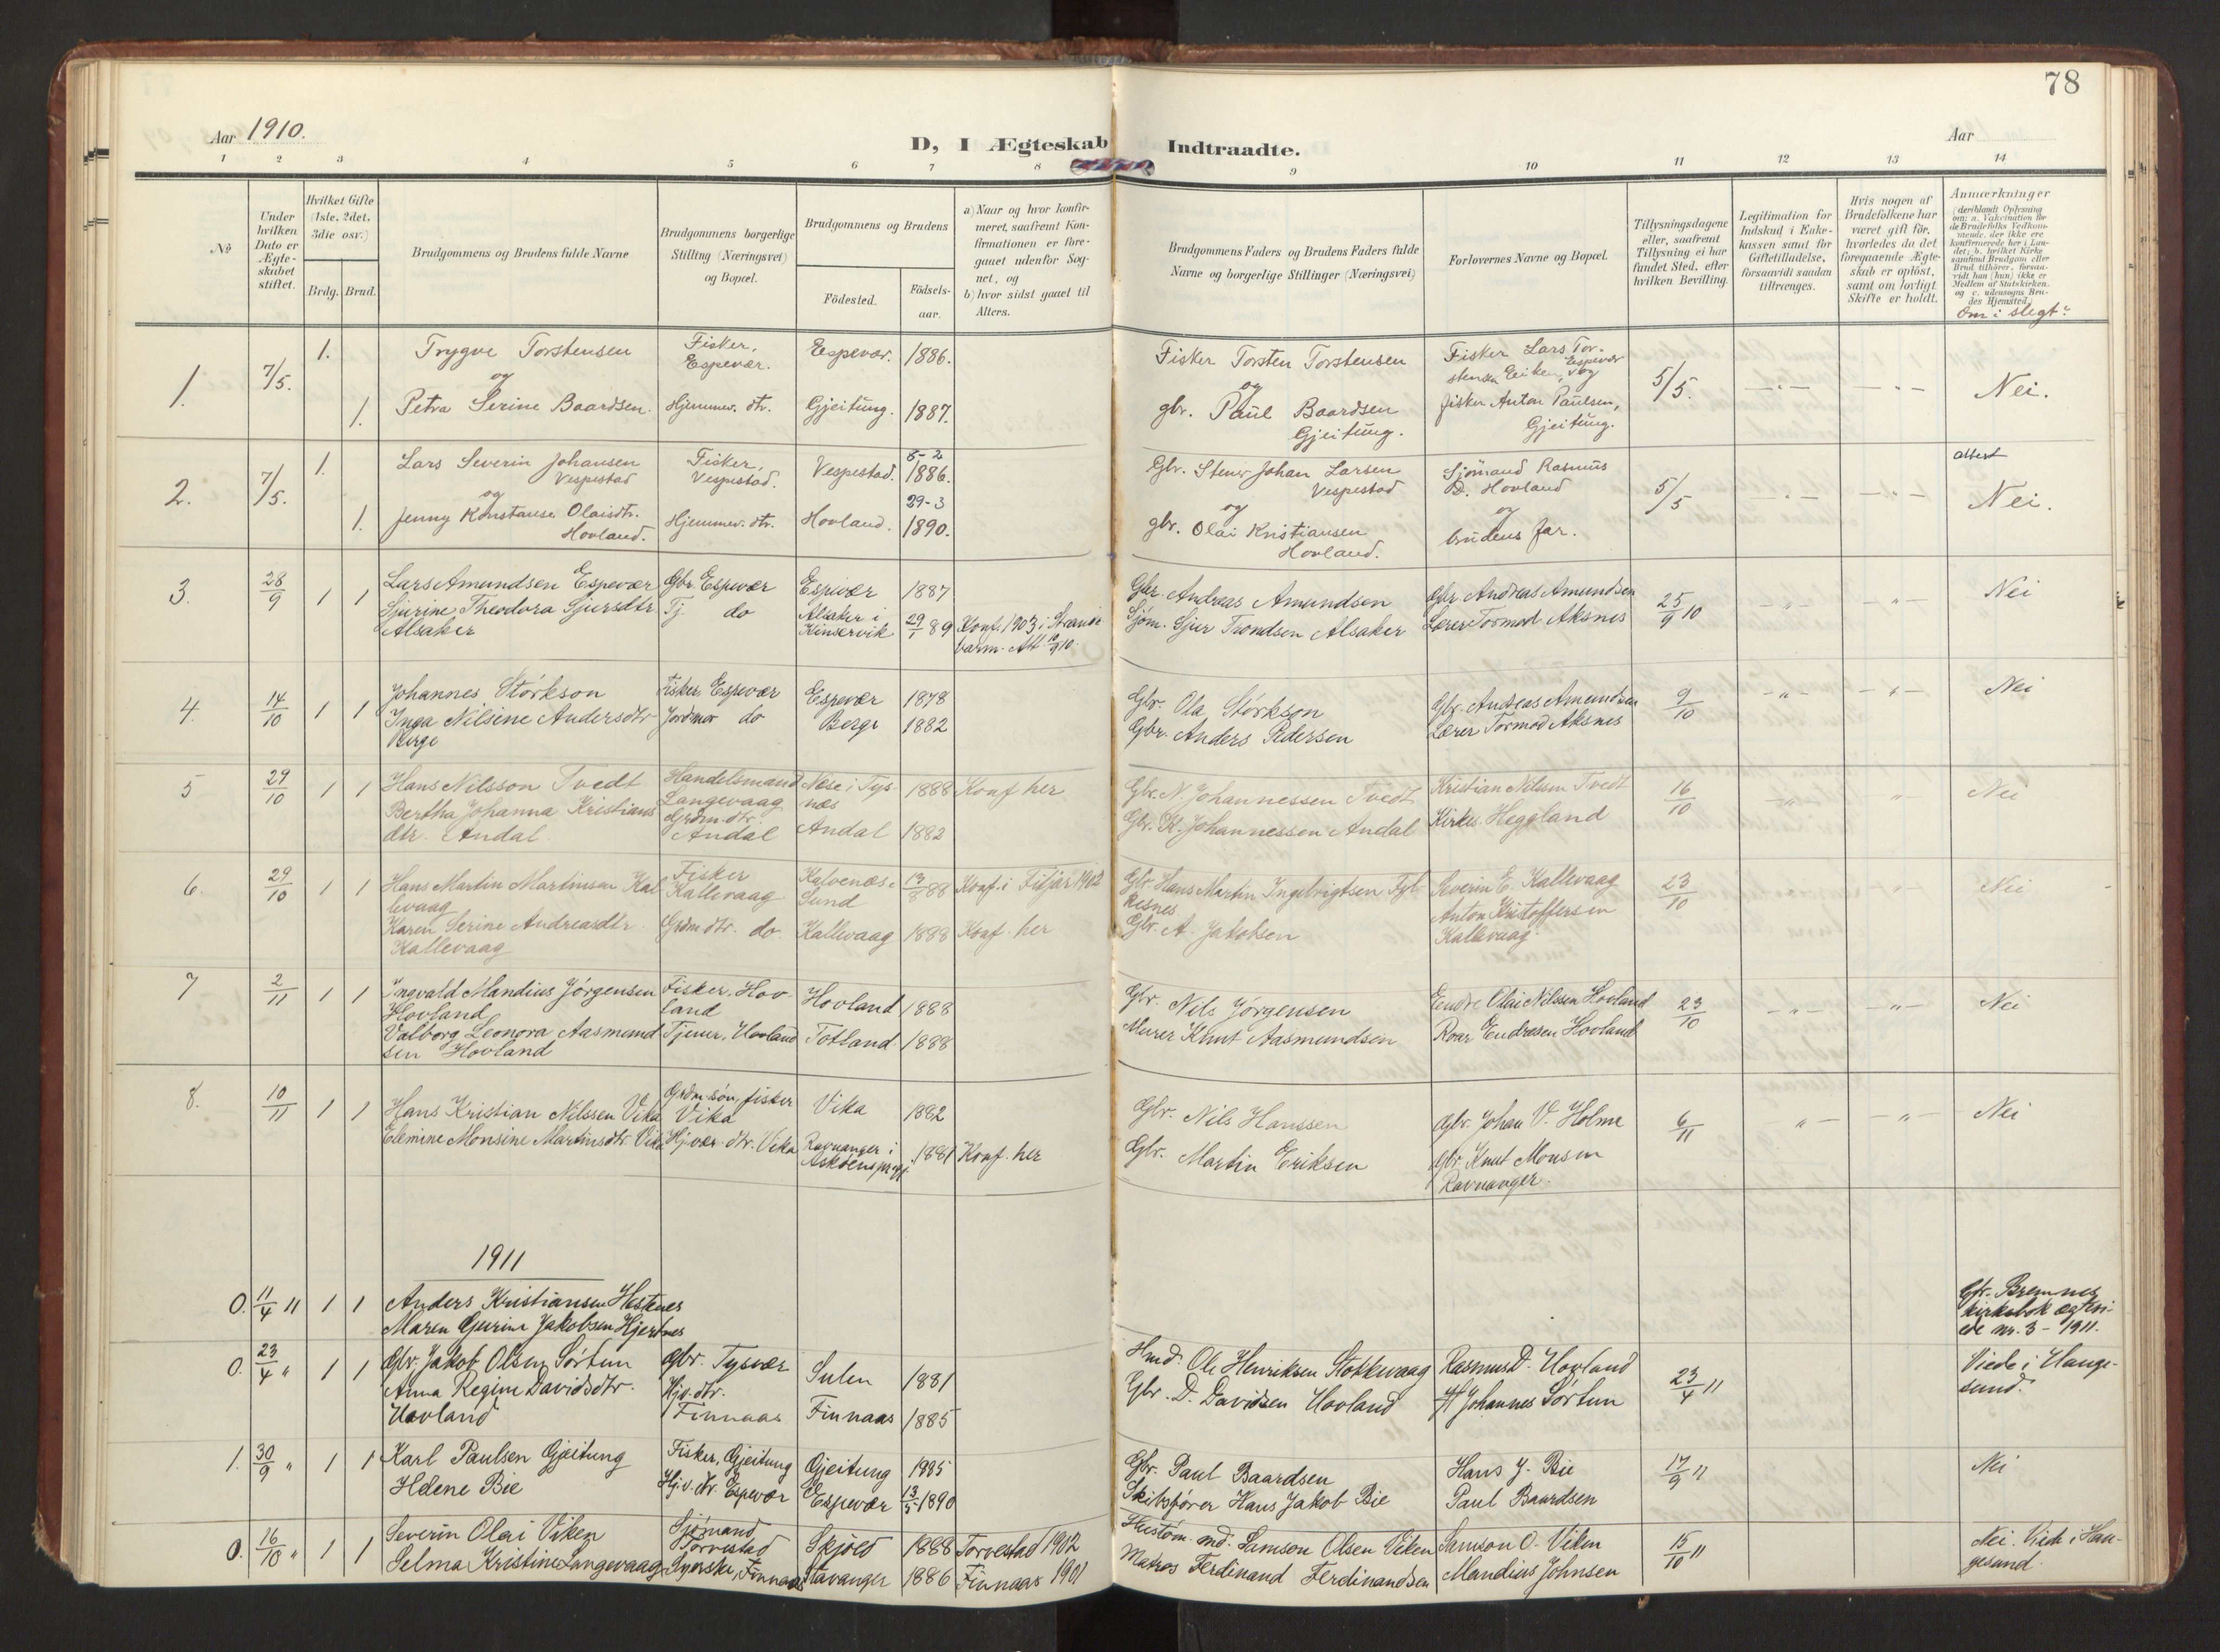 78
Aar 1910.
Aar
D, I Ægteskab Indtraadte.
1 2 3 4 5 6 7 8 9 10 11 12 13 14
No
Under hvilken Dato er Ægteskabet stiftet.
Hvilket Gifte (1ste, 2det, 3die osv.)
Brdg. Brud.
Brudgommens og Brudens fulde Navne
Brudgommens borgerlige Stilling (Næringsvei) og Bopæl.
Brudgommens og Brudens
Födested.
Födselsaar.
a) Naar og hvor konfirmeret, saafremt Konfirmationen er foregaaet udenfor Sognet, og
b) hvor sidst gaaet til Alters.
Brudgommens Faders og Brudens Faders fulde Navne og borgerlige Stillinger (Næringsvei)
Forlovernes Navne og Bopæl.
Tillysningsdagene eller, saafremt Tillysning ei har fundet Sted, efter hvilken Bevilling.
Legitimation for Indskud i Enkekassen samt for Giftetilladelse, forsaavidt saadan tiltrænges.
Hvis nogen af Brudefolkene har været gift för, hvorledes da det foregaaende Ægteskab er oplöst, samt om lovligt Skifte er holdt.
Anmærkninger
(deriblandt Oplysning om: a. Vakcination for de Brudefolks Vedkommende, der ikke ere konfirmerede her i Landet; b. hvilket Kirkesamfund Brudgom eller Brud tilhører, forsaavidt han (hun) ikke er Medlem af Statskirken, og c. udensogns Brudes Hjemsted.)
Om i slegt?
1. 7/5. 1. Trygve Torstensen Fisker, Espevær. Espevær. 1886. Fisker Torsten Torstensen Fisker Lars Torstensen Eiken, Espevær og 5/5. -"- -"- Nei.
og
1. Petra Serine Baardsen. Hjemmev. dtr. Gjeitung. 1887. og gbr. Paul Baardsen Gjeitung. fisker Anton Paulsen, Gjeitung.
2. 7/5. 1. Lars Severin Johansen Vespestad Fisker, Vespestad. Vespestad. 5-2 1886. Gbr. Johan Larsen Vespestad Sjömand Rasmus D. Hovland 5/5 -"- -"- attest Nei.
og
1. Jenny Konstanse Olaisdtr. Hovland. Hjemmev. dtr. Hovland. 29-3 1890. og gbr. Olai Kristiansen Hovland. og brudens far.
3. 28/9 1 1 Lars Amundsen Espevær Gbr. Espevær Espevær 1887 Gbr. Andreas Amundsen Gbr. Andreas Amundsen 25/9 10 -"- -"- Nei
Sjurine Theodora Sjursdtr Alsaker Tj. do Alsaker i Kinservik 29/1 89 Konf. 1903 i Strandebarm. Sjöm. Sjur Trondsen Alsaker Lærer Tormod Aksnes
4. 14/10 1 1 Johannes Störkson Fisker Espevær Espevær 1878 Gbr. Ola Störkson Gbr. Andreas Amundsen 9/10 -"- -"- Nei
Inga Nilsine Andersdtr Berge Jordmor do Berge 1882 Gbr. Anders Pedersen Lærer Tormod Aksnes
5 29/10 1 1 Hans Nilsson Tvedt Handelsmand Langevaag Næse i Tysnæs 1888 Konf her Gbr. N. Johannessen Tvedt Kristian Nilsen Tvedt 16/10 -"- -"- Nei
Bertha Johanna Kristiansdtr. Andal Grdm. dtr. Andal Andal 1882 Gbr. K. Johannessen Andal Kirkes. Heggland
6. 29/10 1 1 Hans Martin Martinsen Kallevaag Fisker Kallevaag Kalvenæs Sund 13/8 88 Konf. i Fitjar 1902 Gbr Hans Martin Ingebrigtsen Severin E. Kallevaag 23/10 Nei
Karen Serine Andreasdtr. Kallevaag Grdm dtr. do. Kallevaag 1888 Konf. her Gbr. A. Jakobsen Anton Kristoffersen Kallevaag
7 2/11 1 1 Ingvald Mandius Jörgensen Hovland Fisker, Hovland Hovland 1888 Gbr. Nils Jörgensen Endre Olai Nilssen Hovland 23/10 -"- -"- Nei
Valborg Leonora Aasmundsen Hovland Tjener, Hovland Totland 1888 Murer Knut Aasmundsen Roar Endresen Hovland
8. 10/11 1 1 Hans Kristian Nilssen Vika Grdm. sön, fisker Vika Vika 1882 Gbr. Nils Hanssen Gbr. Johan V. Holme 6/11 -"- -"- Nei
Elemine Monsine Martinsdtr. Vika Hj.vær. dtr. Vika Ravnanger i Asköens pr.gj. 1881 Konf. her Gbr. Martin Eriksen Gbr. Knut Monsen Ravnanger.
1911
0. 11/4 11 1 1 Anders Kristiansen Hestnes
Maren Gurine Jakobsen Hjertnes
Cfr. Bremnes kirkebok ægteviede nr. 3 - 1911.
0. 23/4 " 1 1 Gbr. Jakob Olsen Sörtun Gbr. Tysvær Sulen 1881 Hmd. Ole Henriksen Stokkevaag Rasmus D. Hovland 23/4 11 Viede i Haugesund.
Anna Regine Davidsdtr. Hovland Hjv. dtr. Finnaas Finnaas 1885 Gbr. D. Davidsen Hovland Johannes Sörtun
1. 30/9 " 1 1 Karl Paulsen Gjeitung Fisker, Gjeitung Gjeitung 1885 Gbr. Paul Baardsen Hans J. Bie 17/9 11 Nei
Helene Bie Hj.v. dtr. Espevær Espevær 13/5 1890 Skibsförer Hans Jakob Bie Paul Baardsen
0. 16/10 " 1 1 Severin Olai Viken Sjömand, Torvestad Skjold 1888 Torvestad 1902 Samson Olsen Viken Samson O. Viken 15/10 11 Nei. Viede i Haugesund.
Selma Kristine Langevaag Syerske, Finnaas Stavanger 1886 Finnaas 1901 Matros Ferdinand Ferdinandsen Mandius Johnsen